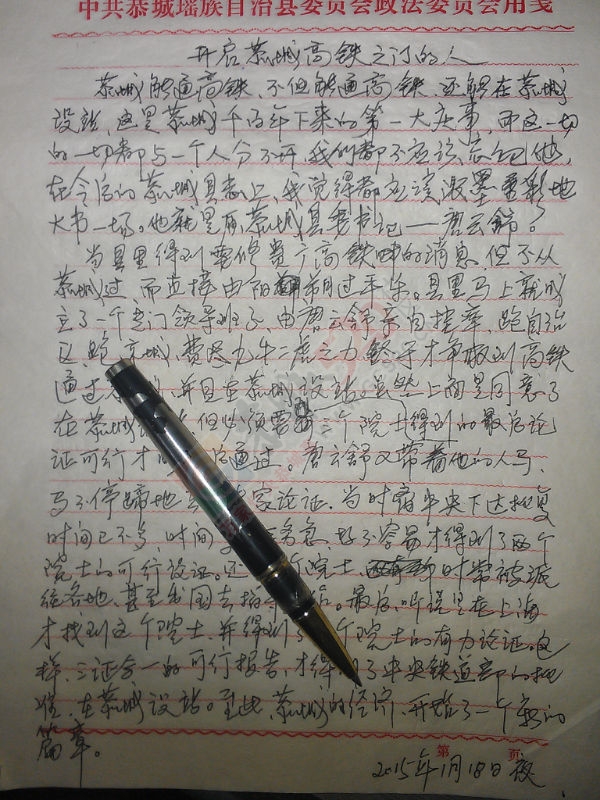 中共恭城瑶族自治县委员会政法委员会用笺
开启恭城高铁之门的人
恭城能通高铁、不但能通高铁、还能在恭城
设站,这是恭城千百年下来的第一大庆事,而这一切
的一切都与一个人分不开,我们都不应该忘记他,
在今后的恭城县志上,我觉得都应该浓墨重彩地
大书一场。他就是原恭城县委书记——唐云舒。
当县里得到要修贵广高铁时的消息,但不从
恭城过,而直接由阳朔过平乐。县里马上就成
立了一个专门领导班子,由唐云舒亲自挂率,跑自治
区,跑京城,费尽九牛二虎之力终于才争取到高铁
通过,并且在恭城设站。虽然上面是同意了
在恭城 但必须要有三个院士得到的最后论
证可行才 通过。唐云舒又带着他的人马,
马不停蹄地 家论证。当时离中央下达批复
时间已不多,时间 务急,好不容易才得到了两个
院士的可行设证。还 个院士, 时常被派
往各地、甚至出国去指 。最后,听说是在上海
才找到这个院士,并得到了 个院士的有力论证。这
样,三证合一的可行报告,才得 了中央铁道部的批
准,在恭城设站。至此,恭城的经济,开始了一个新的
篇章。
第 页
2015年1月18日夜